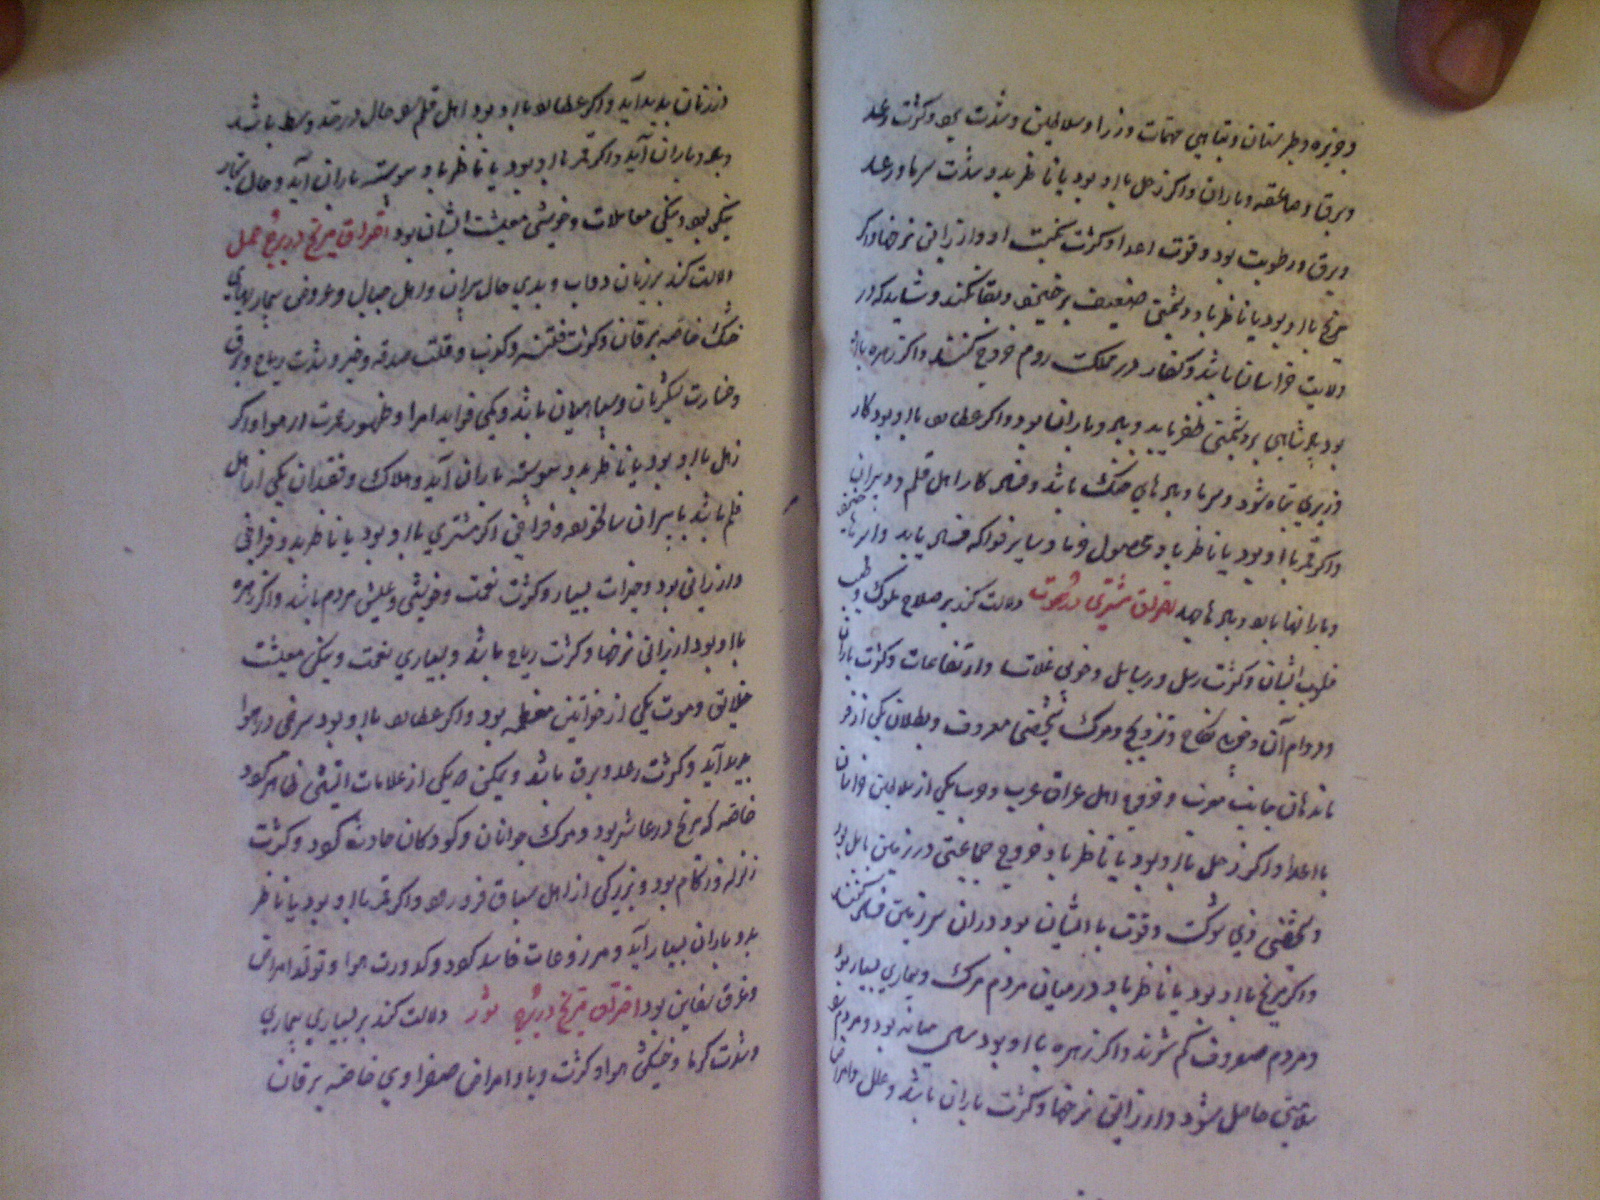 و جزیره و طبرستان و تباهی مهمات وزرا و سلاطین و شدت و کثرت رعد
و برق و صاعقه و باران و اکر زحل با او بود یا ناظر بدو شدت سرما و رعد
و برق و رطوبت بود و قوت اعدا و کثرت او و ارزانی نرخها و اکر
مریخ با او بود یا ناظر باو دشمنی ضعیف بر خیزد و بقا نکند و شاید که در
ولایت خراسان باشد و کفار در مملکت روم خروج کنند و اکر زهره با او
بود پادشاهی بر دشمنی ظفر یابد و باران بود و اکر عطارد با او بود کار
وزیری تباه شود و سرما و های خنک باشد و کار اهل قلم و دبیران
و اکر قمر با او بود یا ناظر باو محصول و سایر فواکه فساد یابد و
و بارانها احتراق مشتری در حوت دلالت کند بر صلاح ملوک و طیب
قلوب ایشان و کثرت رسل و رسایل و خوبی غلات و ارتفاعات و کثرت باران
و دوام آن و نکاح و تزویج و مرک شخصی معروف و بطلان یکی از
جانب جنوب و اهل عراق عرب و حرب یکی از سلاطین
با اعدا و اکر زحل با او بود یا ناظر باو خروج جماعتی در زمین بابل بود
و شخصی ذی شوکت و قوت با ایشان بود در آن سرزمین فساد کنند
و اکر مریخ با او بود یا ناظر باو در میان مردم مرک و بیماری بسیار بود
و مردم معروف کم شوند و اکر زهره با او بود میانه بود و مردم
حاصل شود و ارزانی نرخها و کثرت باران باشد و علل و امراض
در زنان پدید آید و اکر عطارد با او بود اهل قلم را حال در حد وسط باشد
و باران آید و اکر قمر با او بود یا ناظر باو پیوسته باران آید و حال تجار
نیکو بود و نیکی معاملات و خوشی معیشت ایشان بود احتراق مریخ در برج حمل
دلالت کند بر زیان دواب و بدی حال پیران و اهل جبال و عروض بیماریهای
خشک خاصه یرقان و کثرت فتنه و کذب و قلت صدقه و خیر و شدت ریاح و برق
و خسارت لشکریان و سپاهیان باشد و یکی فواید امرا و ظهور حمرت در هوا و اکر
زحل با او بود یا ناظر بدو پیوسته باران آید و هلاک و فقدان یکی از اهل
قلم باشد یا پیران سالخورده و فراخی اکر مشتری با او بود یا ناظر بدو فراخی
و ارزانی بود و خیرات بسیار و کثرت نعمت و خوشی و عیش مردم باشد و اکر زهره
با او بود ارزانی نرخها و کثرت ریاح باشد و بسیاری نعمت و نیکی معیشت
خلایق و موت یکی از خواتین معظمه بود و اکر عطارد با او بود سرخی در هوا
پدید آید و کثرت رعد و برق باشد و یمکن که یکی از علامات آتشی ظاهر کردد
خاصه که مریخ در عاشر بود و مرک جوانان و کودکان حادث کردد و کثرت
زلزله و زکام بود و بزرکی از اهل سپاق فرو رود و اکر قمر با او بود یا ناظر
بدو باران بسیار آید و مزروعات فاسد کردد و کدورت هوا و تولد امراض
و غرق سفاین بود احتراق مریخ در برج ثور دلالت کند بر بسیاری بیماری
و شدت کرما و خشکی هوا و کثرت وبا و امراض صفراوی خاصه یرقان